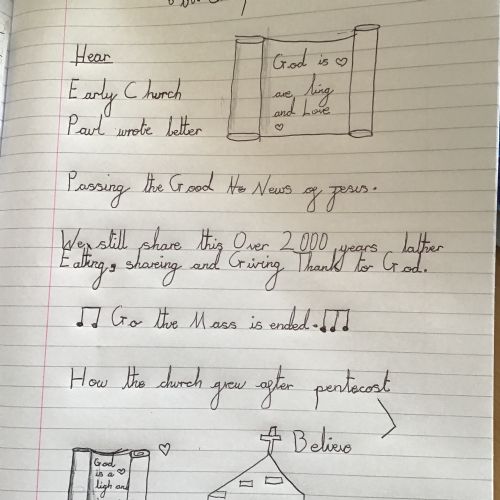 Hear
God is ♡
are ling
and Love
♡
Early Church
Paul wrote better
Passing the Good Ne News of jesus.
We still share this Over 2000 years lather
Eatting, shareing and Giving Thank to God.
Go the Mass is ended.
How the church grew after pentecost
Believe
God
is a ♡
ligh and